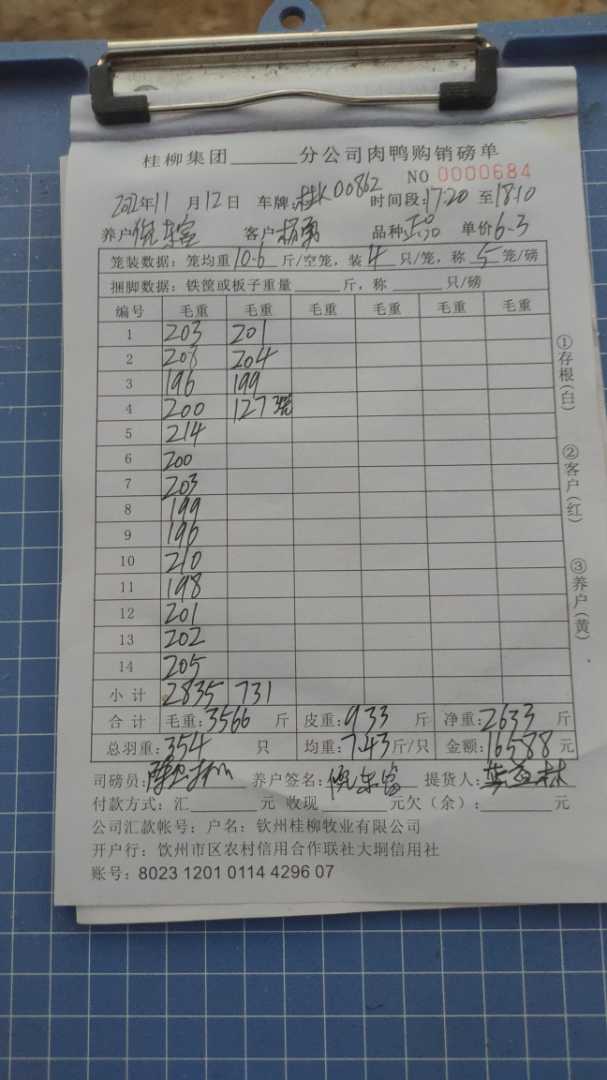 桂柳集团______分公司肉鸭购销磅单
NO 0000684
2022年11月12日 车牌:桂K00862 时间段:17:20 至18:10
养户 客户 品种正品 单价6.3
笼装数据:笼均重10.6斤/空笼,装4只/笼,称5笼/磅
捆脚数据:铁筐或板子重量______斤,称______只/磅
编号 毛重 毛重 毛重 毛重 毛重 毛重
1 203 201
2 208 204
3 196 199
4 200 127 3笼
5 214
6 200
7 203
8 199
9 196
10 210
11 198
12 201
13 202
14 205
小计 2835 731
合计 毛重:3566斤 皮重:933斤 净重:2633斤
总羽重:354只 均重:7.43斤/只 金额:16588元
司磅员: 养户签名: 提货人:
付款方式:汇______元 收现______元欠(余):______元
公司汇款帐号:户名:钦州桂柳牧业有限公司
开户行:钦州市区农村信用合作联社大垌信用社
账号:8023 1201 0114 4296 07
①存根(白)
②客户(红)
③养户(黄)